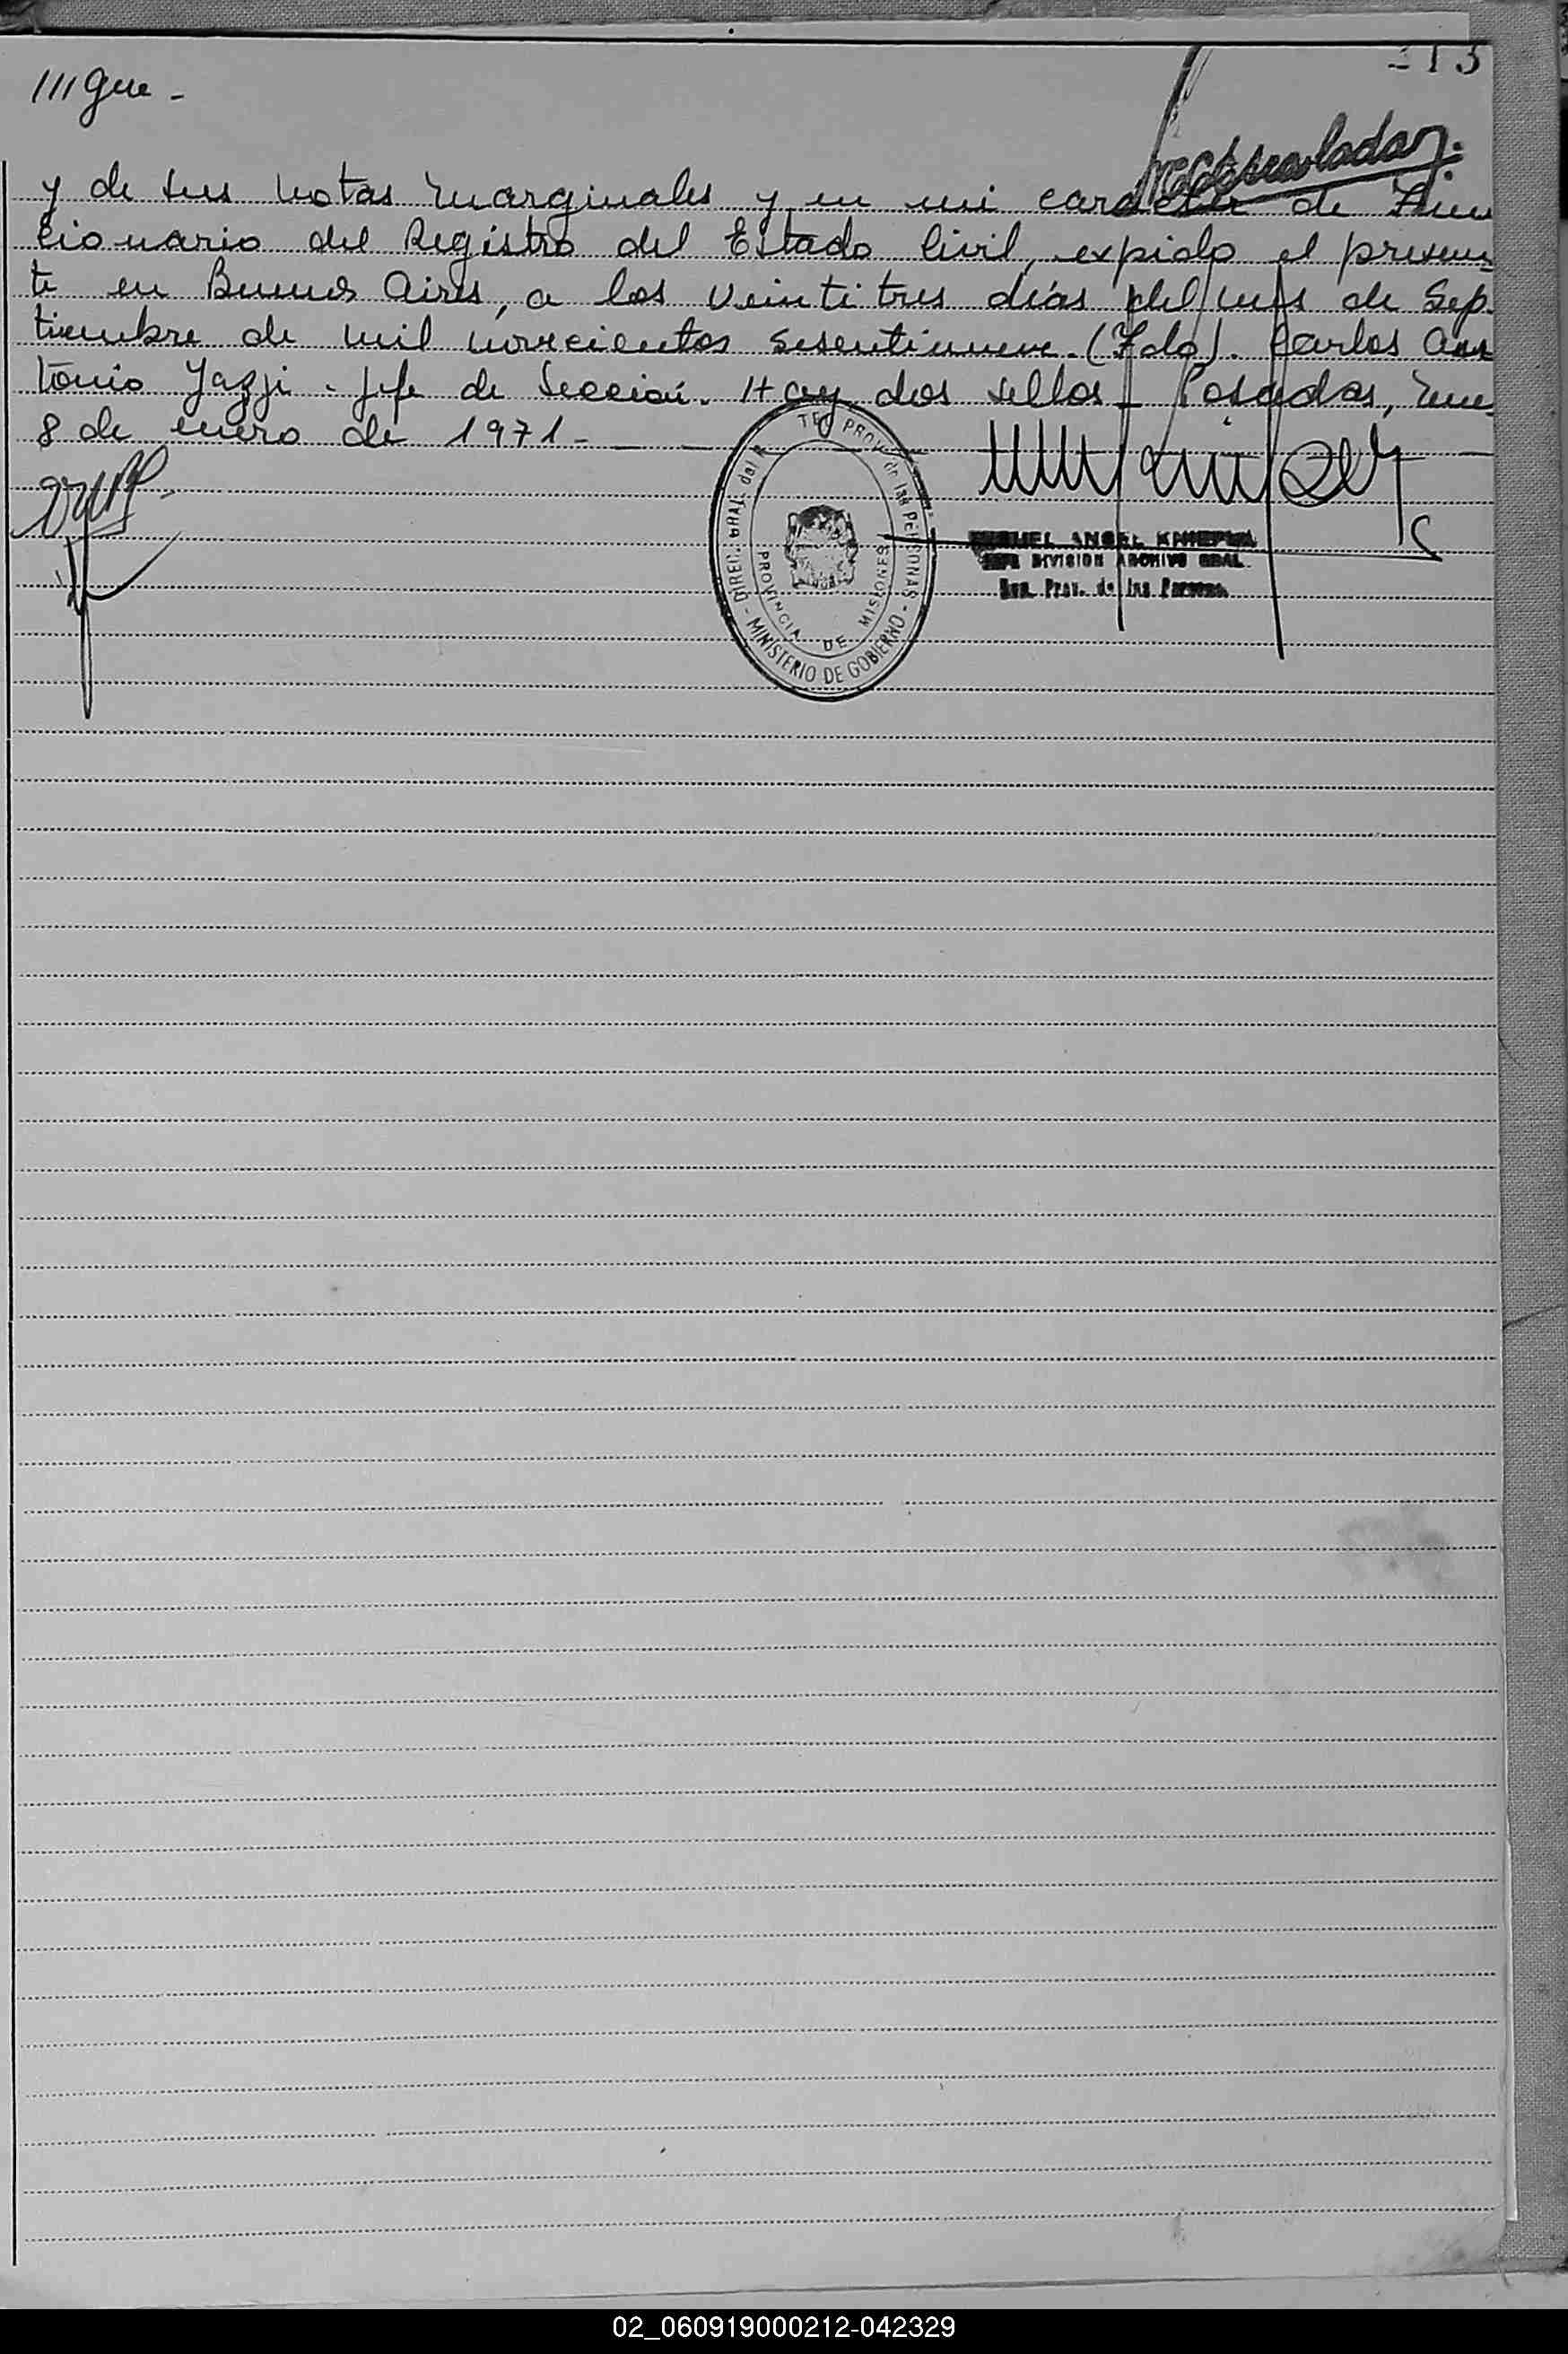 213
///gue -
y de sus notas marginales y en mi caracter de Fun
cionario del Registro del Estado Civil, expido el presen-
te en Buenos Aires, a los veintitres días del mes de Sep-
tiembre de mil novecientos sesentinueve. (Fdo). Carlos An
tonio Yazji - Jefe de Sección. Hay dos sellos - Posadas,
8 de enero de 1971 -
DIREC. GRAL. del PROV. de las PERSONAS - MINISTERIO DE GOBIERNO -
PROVINCIA DE MISIONES
MIGUEL ANGEL
JEFE DIVISION ARCHIVO GRAL.
Reg. Prov. de las Personas
02_060919000212-042329